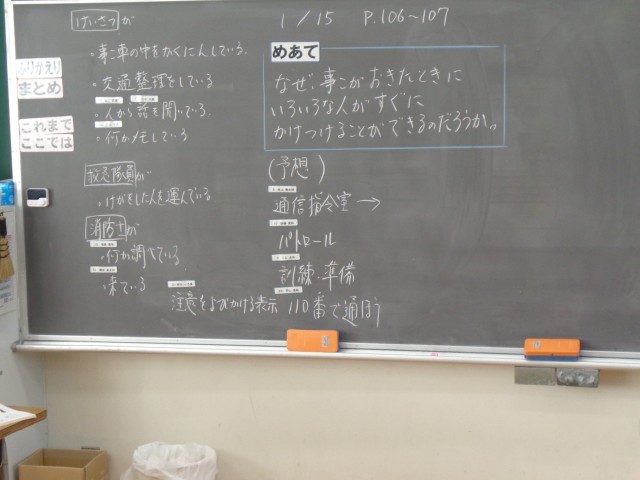 けいさつが
・事こ車の中をかくにんしている。
・交通整理をしている
・人から話を聞いている。
・何かメモしている
救急隊員が
・けがをした人を運んでいる
消防士が
・何か調べている
・来ている
ふりかえり
まとめ
これまで
ここでは
1/15 P.106~107
めあて
なぜ、事こがおきたときに
いろいろな人がすぐに
かけつけることができるのだろうか。
(予想)
通信指令室→
パトロール
訓練、準備
注意をよびかける表示 110番で通ほう